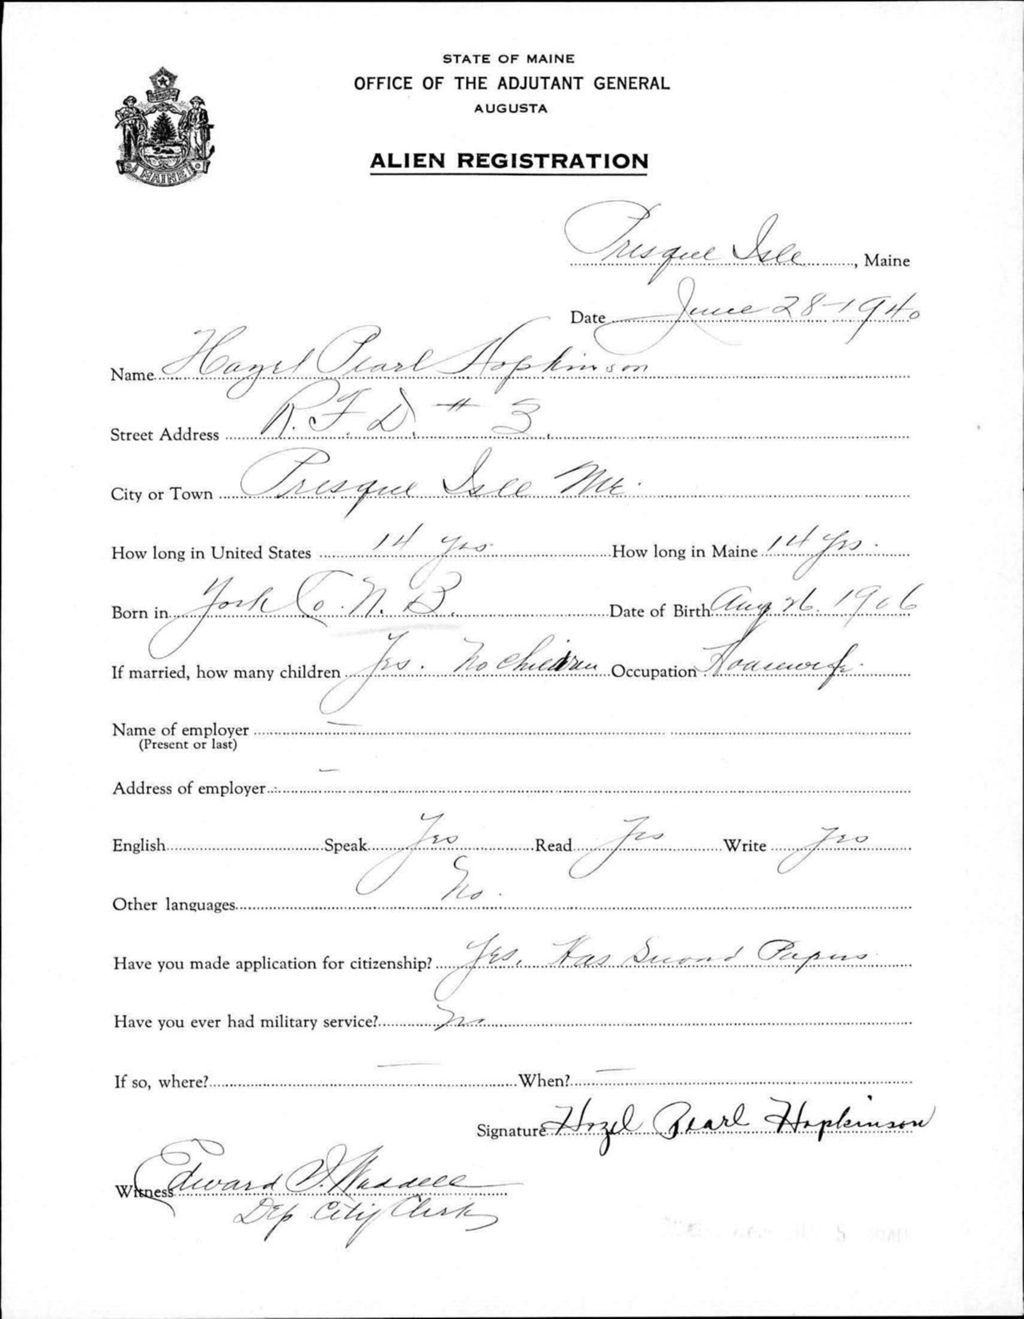 STATE OF MAINE
OFFICE OF THE ADJUTANT GENERAL
AUGUSTA
ALIEN REGISTRATION
MAINE
Presque Isle, Maine
Date June 28-1940
Name Hazel Pearl Hopkinson
Street Address R.F.D. # 3.
City or Town Presque Isle Me.
How long in United States 14 yrs. How long in Maine 14 yrs.
Born in York Co. N.B. Date of Birth Aug 26. 1906
If married, how many children Yes. No children Occupation Housewife.
Name of employer —
(Present or last)
Address of employer —
English Speak Yes Read Yes Write Yes
Other languages No.
Have you made application for citizenship? Yes. Has Second Papers
Have you ever had military service? No
If so, where? — When? —
Signature Hazel Pearl Hopkinson
Witness Edward I. Waddell
Dep City Clerk